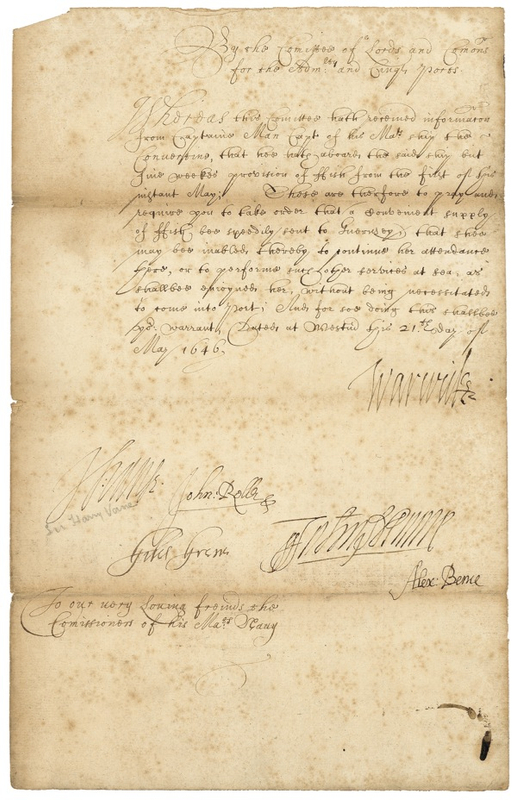 By the Comittee of Lords and Comons
for the Adm:ty and Cinq3 Ports
Whereas this Comittee hath received informacon
from Captaine Man Capt of his Mats ship the
Convertine, that hee hath aboard the said ship but
five weekes provision of ffish from the first of this
instant May; These are therfore to pray and
require you to take order that a convenient supply
of ffish bee speedily sent to Guernsey; that shee
may bee inabled thereby to continue her attendance
there, or to performe such other services at sea, as
shallbee employed her, without being necessitated
to come into Port; And for soe doing this shallbee
yor warrant, Dated at Westmr this 21.th day of
May 1646.
Warwick
HVane
John: Rolle
Sir Harry Vane
Giles Grene
John Bence
Alex: Bence
To our very Loving freinds the
Comissioners of his Mats Navy